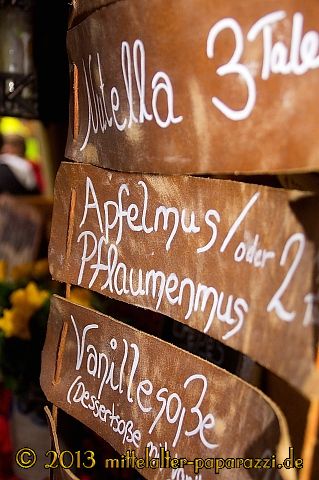 Nutella 3 Taler
Apfelmus/oder 2
Pflaumenmus
Vanillesoße
(Dessertsoße mit
© 2013 mittelalter-paparazzi.de